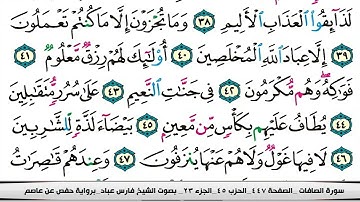 لَذَآئِقُوا۟ ٱلْعَذَابِ ٱلْأَلِيمِ ٣٨ وَمَا تُجْزَوْنَ إِلَّا مَا كُنتُمْ تَعْمَلُونَ
٣٩ إِلَّا عِبَادَ ٱللَّهِ ٱلْمُخْلَصِينَ ٤٠ أُو۟لَٰٓئِكَ لَهُمْ رِزْقٌ مَّعْلُومٌ ٤١
فَوَٰكِهُ وَهُم مُّكْرَمُونَ ٤٢ فِى جَنَّٰتِ ٱلنَّعِيمِ ٤٣ عَلَىٰ سُرُرٍ مُّتَقَٰبِلِينَ
٤٤ يُطَافُ عَلَيْهِم بِكَأْسٍ مِّن مَّعِينٍ ٤٥ بَيْضَآءَ لَذَّةٍ لِّلشَّٰرِبِينَ
٤٦ لَا فِيهَا غَوْلٌ وَلَا هُمْ عَنْهَا يُنزَفُونَ ٤٧ وَعِندَهُمْ قَٰصِرَٰتُ
سورة الصافات _ الصفحة ٤٤٧ _ الحزب ٤٥ _ الجزء ٢٣ _ بصوت الشيخ فارس عباد _ برواية حفص عن عاصم